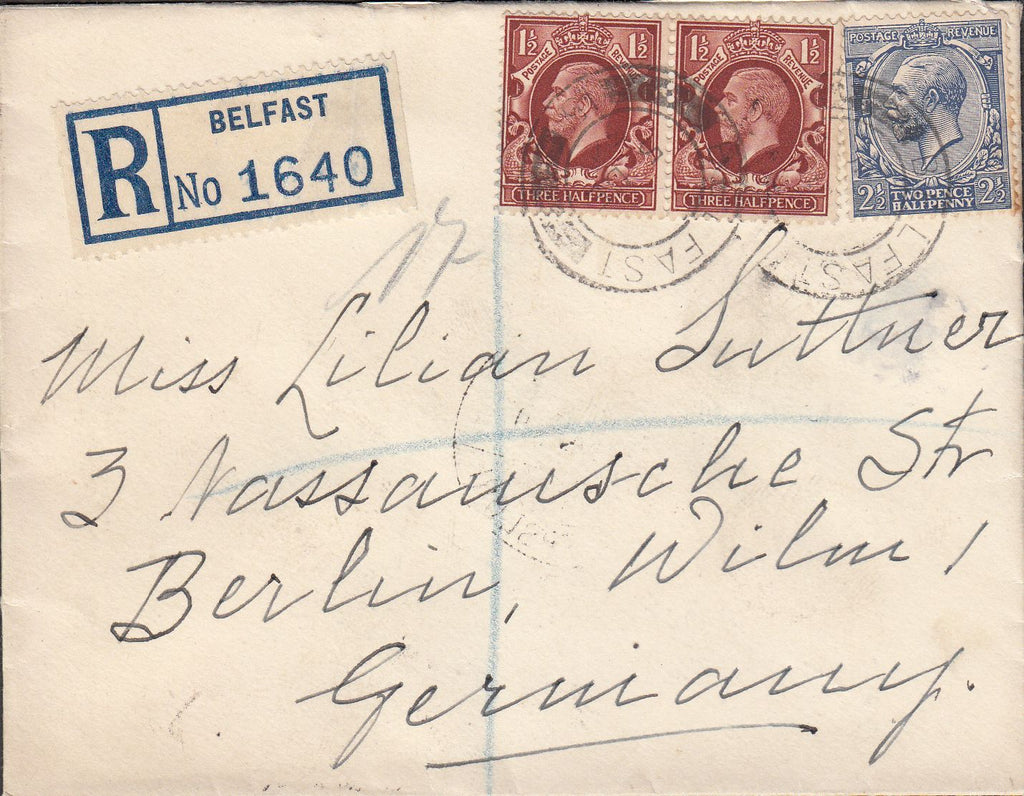 R
BELFAST
No 1640
1½ 1½
POSTAGE REVENUE
THREE HALFPENCE
1½ 1½
POSTAGE REVENUE
THREE HALFPENCE
POSTAGE REVENUE
2½ TWO PENCE HALFPENNY 2½
FAST
LFAST
Miss Lilian Suttner
3 Nassauische Str
Berlin, Wilm 1
Germany.